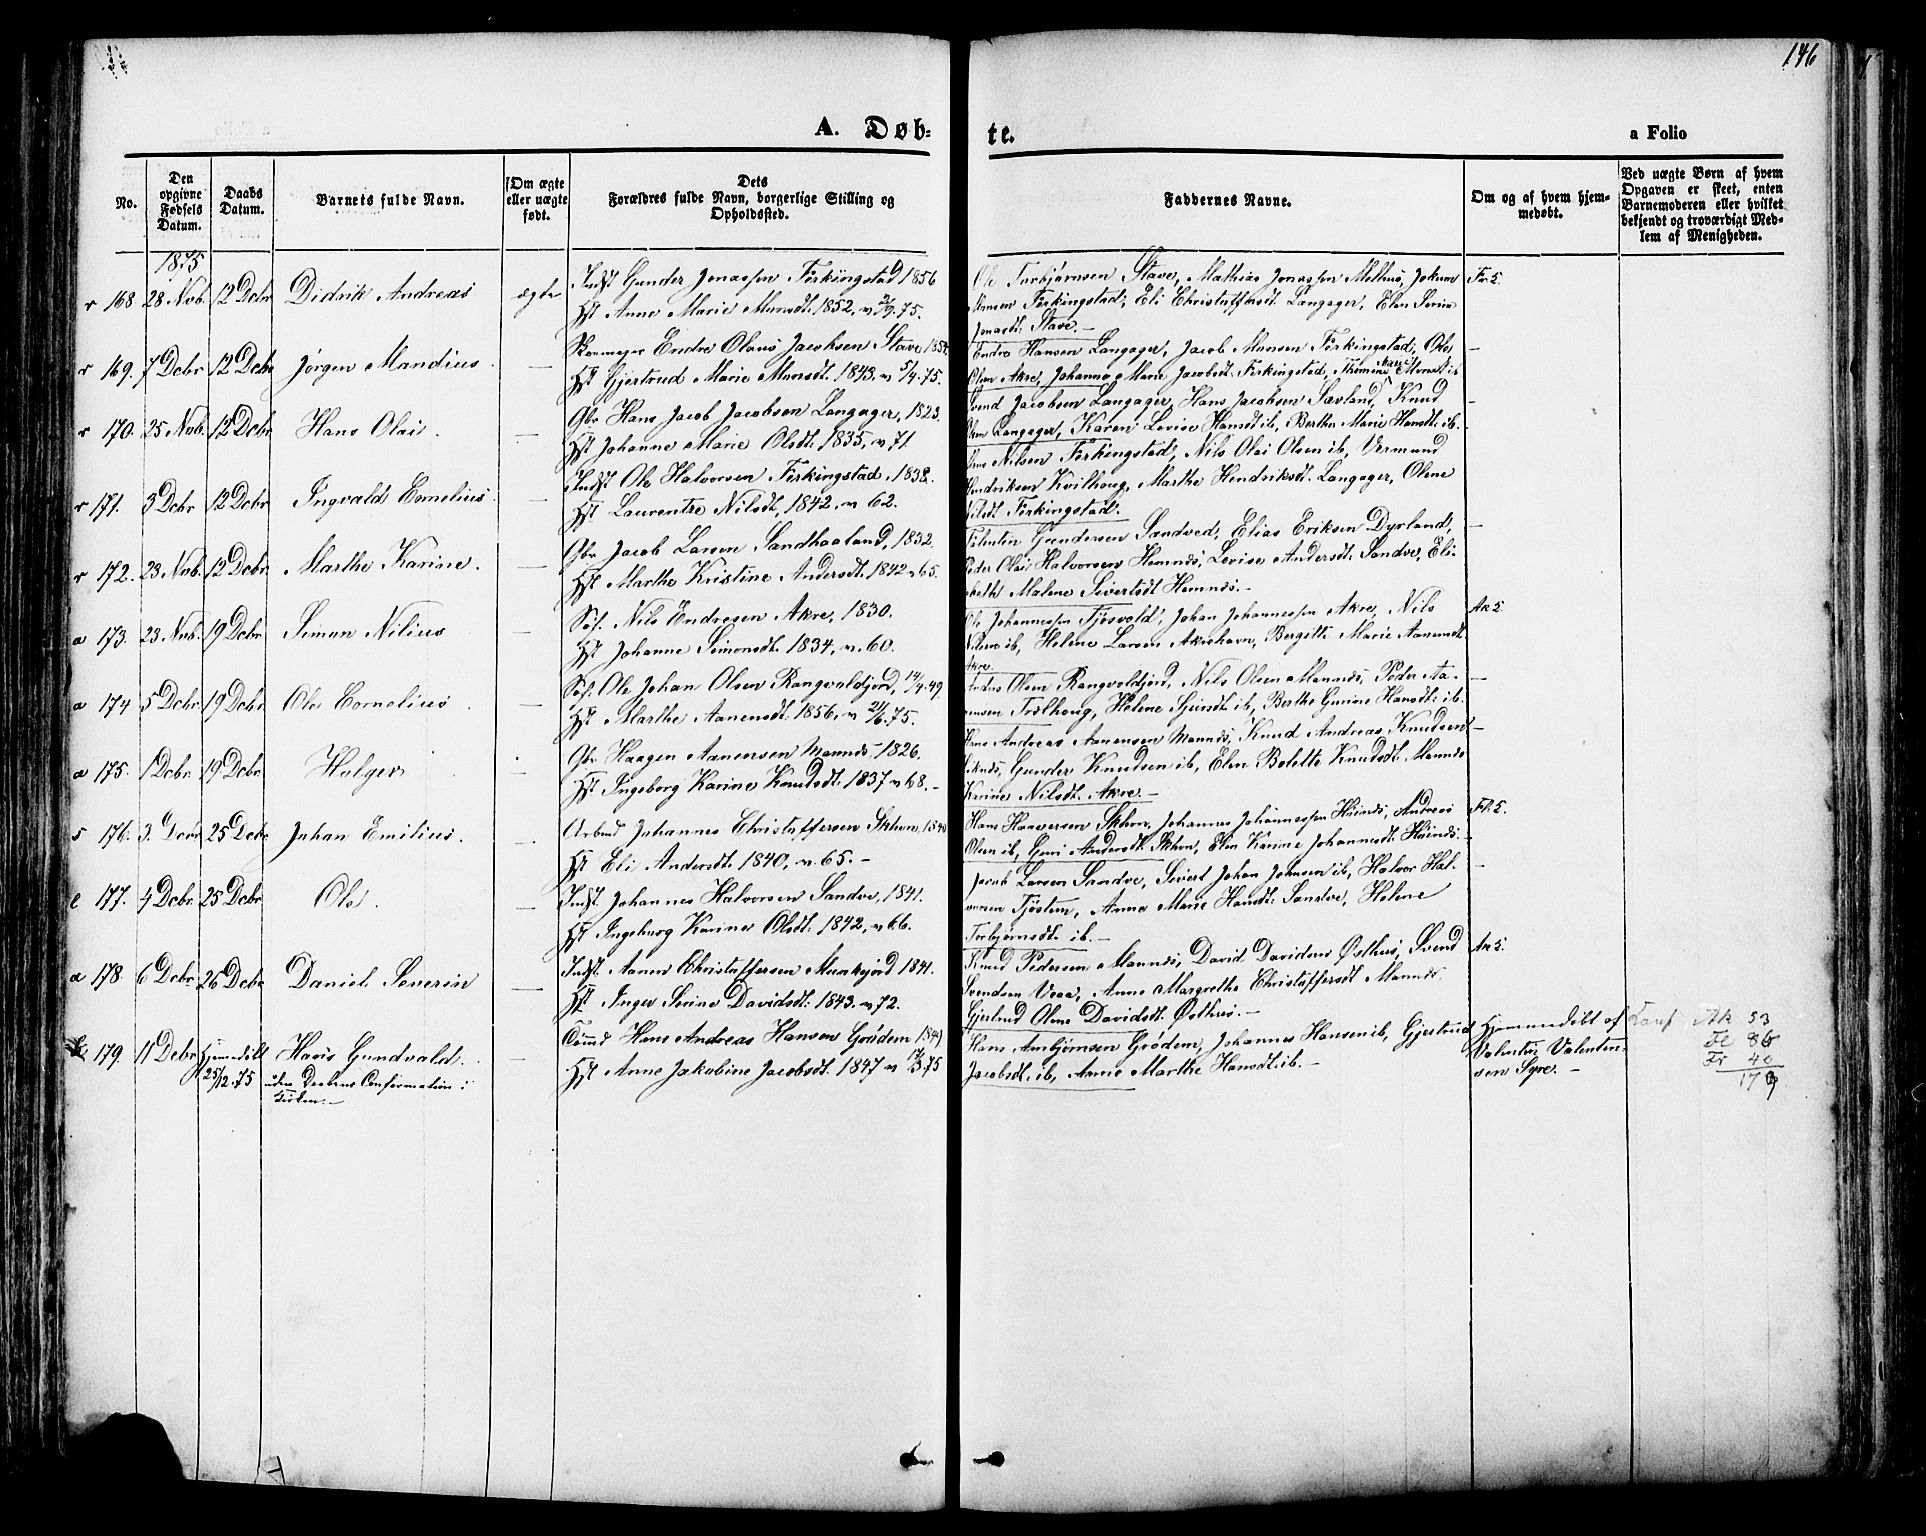 146
A. Døb-
te.
a Folio
No.
Den opgivne Fødsels Datum.
Daabs Datum.
Barnets fulde Navn.
Om ægte eller uægte født.
Dets Forældres fulde Navn, borgerlige Stilling og Opholdssted.
Faddernes Navne.
Om og af hvem hjemmedøbt.
Ved uægte Børn af hvem Opgaven er skeet, enten Barnemoderen eller hvilket bekjendt og troværdigt Medlem af Menigheden.
1875
r 168 28 Nvb. 12 Dcbr Didrik Andreas ægte Indst Gunder Jonassøn Ferkingstad 1856
Hst Anne Marie Monsdt. 1852, v 2/9.75.
Ole Torbjørnsen Stave, Mathias Jonassøn Melhus, Jokum Fr. 5.
Ferkingstad, Eli Christoffersdt Langager, Elen Serine
Jonasdt. Stave. —
r 169. 7 Dcbr 12 Dcbr Jørgen Mandius — Skomager Endre Olaus Jacobsen Stave 1854
Hst Gjertrud Marie Monsdt. 1843. v 5/4.75.
Endre Hansen Langager, Jacob Monsen Ferkingstad, Ole —
Olsen Akre, Johanne Marie Jacobsdt. Ferkingstad, Monsdt ib
r 170. 25 Nvb. 12 Dcbr Hans Olai. — Gbr Hans Jacob Jacobsen Langager, 1823.
Hst Johanne Marie Olsdt. 1835, v. 71
Svend Jacobsen Langager, Hans Jacobsen Savland, Knud —
Olsen Langager, Karen Lovise Hansdt ib, Berthe Marie Hansdt: ib.
r 171. 3 Dcbr 12 Dcbr Ingvald Cornelius. — Indst Ole Halvorsen Ferkingstad. 1838.
Hst Laurentze Nilsdt, 1842, v 62.
Nilsen Ferkingstad, Nils Olai Olsen ib, Vermund
Hendriksen Kvilhoug, Marthe Hendriksdt. Langager, Olene
Nilsdt. Ferkingstad.
r 172. 23 Nvb. 12 Dcbr Marthe Karine. — Gbr Jacob Larsen Sandhaaland, 1832.
Hst Marthe Kristine Andersdt. 1842 v. 65.
Valentin Gundersen Sandved, Elias Eriksen Dyrland, —
Peder Olai Halvorsen Hemnes, Lovise Andersdt. Sandve, Eli-
sabeth Malene Sivertsdt Hemnes. —
a 173. 23 Nvb. 19 Dcbr Simon Nilius — Søf. Nils Endresen Akre, 1830.
Hst Johanne Simonsdt. 1834, v. 60.
Ole Johannessøn Tjøsvold, Johan Johannessøn Akre, Nils Ak 5.
Nilsen ib, Helene Larsen Akrehavn, Bergitte Marie Aanensdt.
Akre.
a 174 5 Dcbr 19 Dcbr Ole Cornelius. — Søf. Ole Johan Olsen Rangvaldjord, 14/4.49.
Hst Marthe Aanensdt: 1856, v 21/6.75.
Anders Olsen Rangvaldjord, Nils Olsen Mannes, Peder Aa- —
nensen Trælhoug, Helene Sjursdt ib, Berthe Gurine Hansdt: ib.
a 175. 1 Dcbr. 19 Dcbr Holger — Gbr Haagen Aanensen Mannes 1826.
Hst Ingeborg Karine Knudsdt: 1837 v 68. —
Hans Andreas Aanensen Mannes, Knud Andreas Knudsen —
Gunder Knudsen ib, Elen Bolette Knudsdt. Mannes
Karine Nilsdt. Akre. —
s 176. 3. Dcbr 25 Dcbr Johan Emilius. — Arbmd Johannes Christoffersen Skhvn, 1840
Hst Eli Andersdt. 1840, v. 65. —
Hans Haaversen Skhvn, Johannes Johannessøn Hüines, Andreas Fl. 5.
Olsen ib, Guri Andersdt. Skhvn, Elen Karine Johannesdt. Hüines.
e 177. 4 Dcbr. 25 Dcbr Ole. — Indst. Johannes Halvorsen Sandve, 1841.
Hst Ingeborg Karine Olsdt: 1842, v. 66.
Jacob Larsen Sandve, Sivert Johan Johnsen ib, Halvor Hal- —
vorsen Tjøstem, Anne Marie Hansdt: Sandve, Helene
Torbjørnsdt. ib. —
a 178 6 Dcbr. 26 Dcbr Daniel Severin — Indst. Aanen Christoffersen Munkejord 1841.
Hst Inger Serine Davidsdt: 1843. v 72.
Knud Pedersen Mannes, David Davidsen Østhus, Svend Ak 5.
Svendsen Veaa, Anne Margrethe Christoffersdt Mannes
Gjertrud Olene Davidsdt. Østhus. —
179. 11 Dcbr Hjemmedøbt 25/12.75 Hans Gundvald. — Hans Andreas Hansen Grødem 1849
uden Daabens Confirmation i
Kirken. —
Hst Anne Jakobine Jacobsdt. 1847 v 17/3.75
Hans Ambjørnsen Grødem, Johannes Hansen ib, Gjertrud
Jacobsdt: ib, Anne Marthe Hansdt: ib. —
Hjemmedøbt af
Valentin Valentin-
sen Syre. —
Ak 53
Fe 86
Fr 40
179